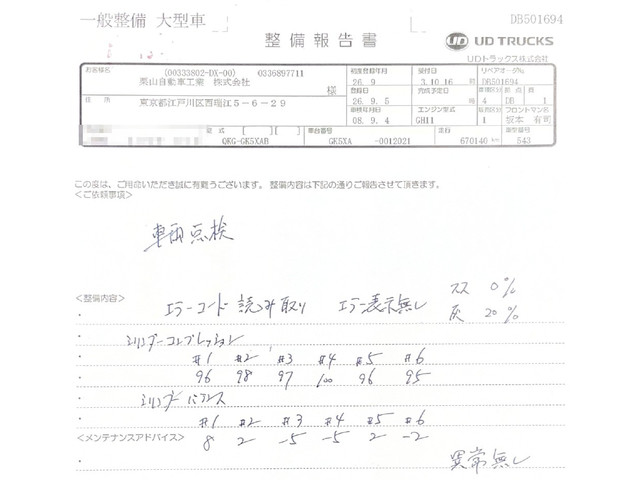 一般整備 大型車
DB501694
整備報告書
UD TRUCKS
UDトラックス株式会社
お客様名 (00333802-DX-00) 0336897711
葛山自動車工業 株式会社 様
住所 東京都江戸川区西瑞江5-6-29
初度登録年月 受付日 リペアオーダ№
26. 9 3.10.16 DB501694
登録日 完成予定日
26. 9. 5 4 DB 1
車検年月日 エンジン型式 フロントマン名
08. 9. 4 GH11 1 坂本 有司
車台番号 走行
QKG-GK5XAB GK5XA -0012021 670140 km 543
この度は、ご用命いただき誠に有難うございます。整備内容は下記の通りご報告させて頂きます。
<ご依頼事項>
車両点検
<整備内容>
エラーコード読み取り エラー表示無し
スス 0%
灰 20%
シリンダーコンプレッション
#1 #2 #3 #4 #5 #6
96 98 97 100 96 95
シリンダーバランス
#1 #2 #3 #4 #5 #6
<メンテナンスアドバイス> 8 2 -5 -5 2 -2
異常無し